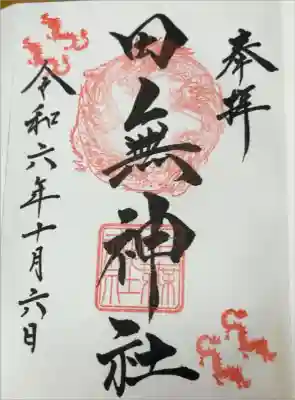 奉拝
田無神社
令和六年十月六日